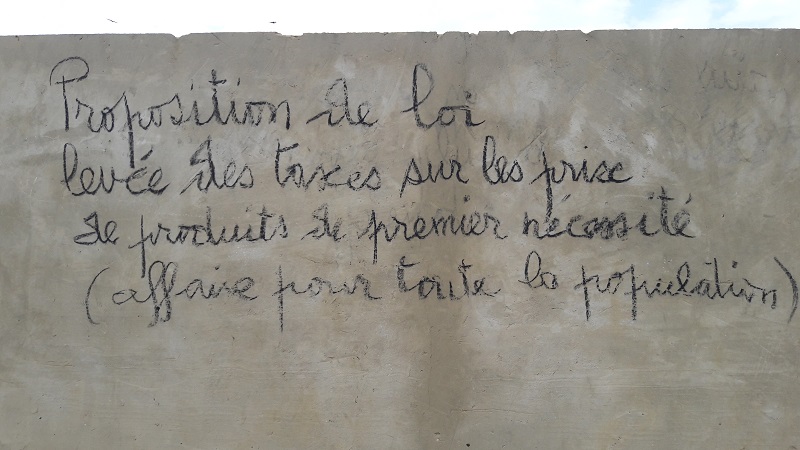 Proposition de loi
levée des taxes sur les prix
de produits de premier nécessité
(affaire pour toute la population)